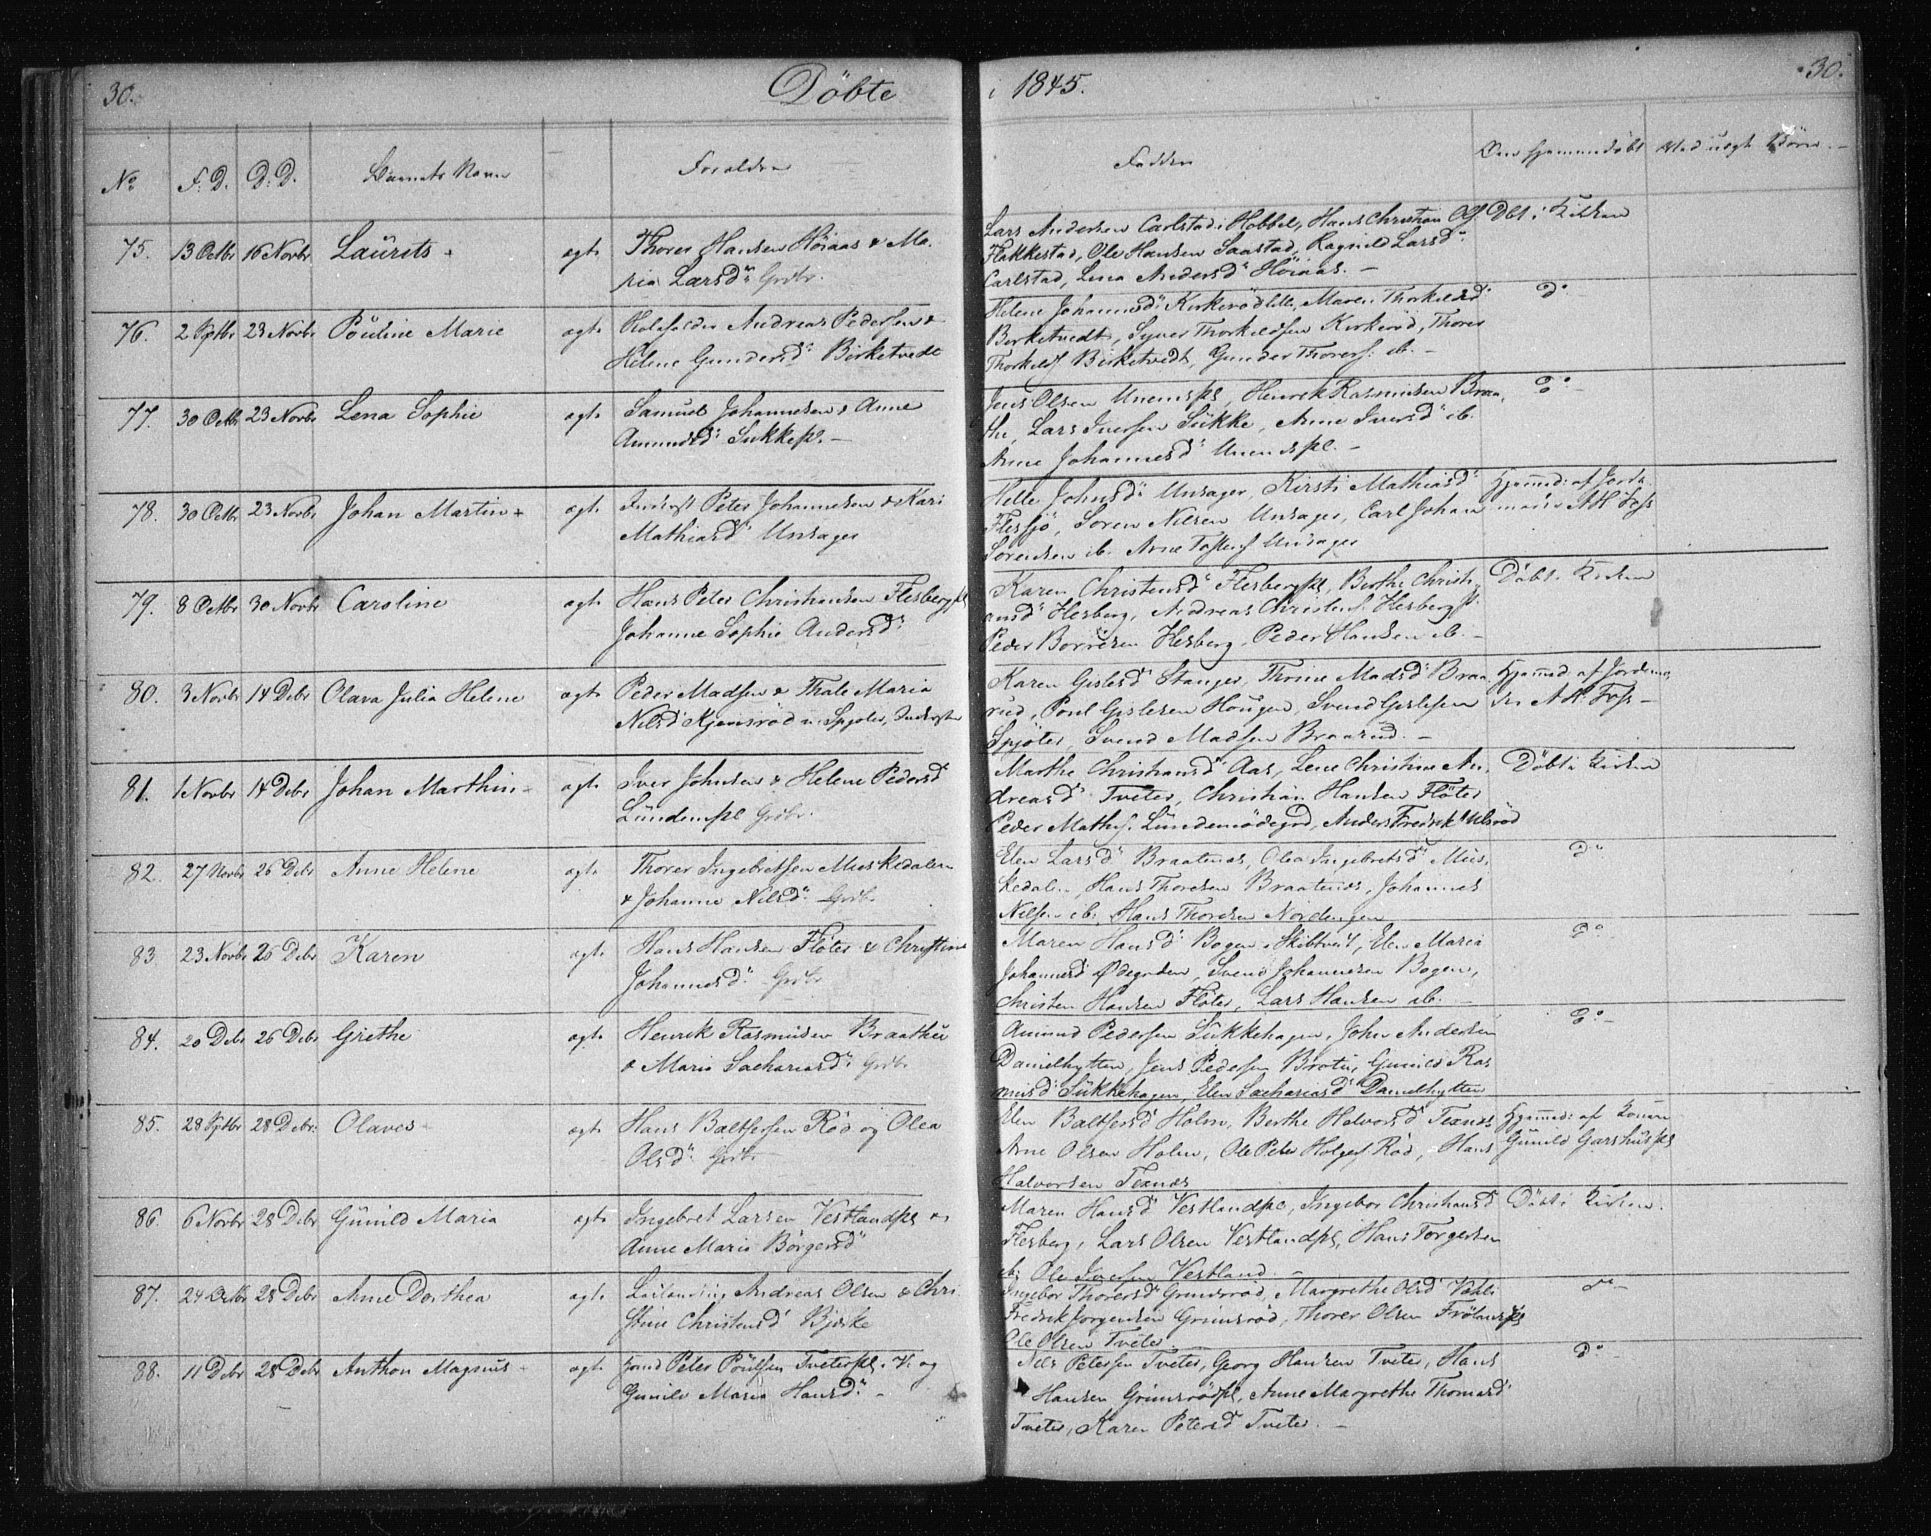 30.
Döbte
i 1845.
30.
No
F: D.
D: D.
Barnets Navn
Forældre
Faddere
Om hjemmedöbt
75. 13 Octbr 16 Novbr Laurits ægte Thorer Hansen Höiaas & Ma-
ria Larsdr Grdbr.
Lars Andersen Carlstad i Hobbel, Hans Christian Ols. Döbt i Kirken
Flakkestad, Ole Hansen Saastad, Ragnild Larsdr
Carlstad, Lena Andersdr Höiaas. –
76. 2 Sptbr 23 Novbr Pouline Marie ægte Andreas Pedersen &
Helene Gundersd Birketvedt
Helene Johannesdr Kirkeröd Maren Thorkildsd Do
Birketvedt, Syver Thorkildsen Kirkeröd, Thorer
Thorkilds Birketvedt, Gunder Thorers: ib. –
77. 30 Octbr 23 Novbr Lena Sophie ægte Samuel Johannesen & Anne
Amundsd Sukkepl. –
Jens Olsen Unemspl, Henrik Rasmusen Braa- Do
the, Lars Iversen Sukke, Anne Iversd ib.
Anne Johannesd Unemspl. –
78. 30 Octbr 23 Novbr Johan Martin + ægte Inderst Peter Johannesen & Kari
Mathiasdr Unsager
Helle Johnsdr Unsager, Kirsti Mathiasdr Hjemmed: af Jorde-
Flesjö, Soren Nilsen Unsager, Carl Johan moder AK Foss
Sorensen ib. Arne Unsager
79. 8 Octbr 30 Novbr Caroline ægte Hans Peter Christiansen Flesbergpl
Johanne Sophie Andersdr
Karen Christensdr Flesbergpl, Berthe Christi- Döbt i Kirken
ansd Flesberg, Andreas Christens: Flesbergpl.
Peder Borresen Flesberg, Peder Hansen ib. –
80. 3 Novbr 14 Debr Olava Julia Helene ægte Peder Madsen & Thale Maria
Nilsd Kjensröd u. Spjoter, Inderster
Karen Gislesd Stanger, Thorine Madsd Braa- Hjemmed: af Jordemo-
rud, Poul Gislesen Hougen, Svend Gislesen der AK Foss –
Spjöter, Svend Madsen Braarud. –
81. 1 Novbr 14 Debr Johan Marthin ægte Iver Johnsen & Helene Pedersd
Lundempl Grdbr.
Marthe Christiansd Aas, Lene Christine An- Döbt i Kirken
dreasd Tveter, Christian Hansen Flöter
Peder Maths: Lundemödegrd, Anders Fredrik Ulsröd
82. 27 Novbr 26 Debr Anne Helene ægte Thorer Ingebretsen Muskedalen
& Johanne Nilsdr Grdbr.
Elen Larsdr Braatenes, Olea Ingebretsdr Mus- Do
kedalen, Hans Thoresen Braatenes, Johannes
Nilsen ib. Hans Thoresen Nordengen
83 23 Novbr 26 Debr Karen ægte Hans Hansen Flöter & Christine
Johannesdr Grdbr
Maren Hansd Bogen i Skibtvet, Elen Maria Do
Johannesd Ödegarden, Svend Johannesen Bogen,
Christen Hansen Flöter, Lars Hansen ib. –
84. 20 Debr 26 Debr Grethe ægte Henrik Rasmusen Braathen
& Maria Sachariasdr Grdbr.
Amund Pedersen Sukkehagen, John Andersen Do
Danielhytten, Jens Pedersen Bröten, Gunild Ras-
musd Sukkehagen, Elen Sachariasd Danielhytten
85. 28 Sptbr 28 Debr. Olaves ægte Hans Baltsersen Röd og Olea
Olsdr Grdbr
Elen Baltsersd Holm, Berthe Halvorsd Texnes Hjemmed: af Konen
Arne Olsen Holm, Ole Peter Holgers Röd, Hans Gunild Garshuspl
Halvorsen Texnes
86. 6 Novbr 28 Debr Gunild Maria ægte Ingebret Larsen Vestlandpl &
Anne Maria Börgersdr
Maren Hansd Vestlandpl, Ingebor Christiansd Döbt i Kirken.
Flesberg, Lars Olsen Vestlandpl, Hans Torgersen
ib: Ole Iversen Vestland. –
87. 24 Octbr 28 Debr Anne Dorthea ægte Andreas Olsen & Chri-
stine Christensd Bjerke
Ingebor Thorersd Grimsröd, Margrethe Olsd Do
Fredrik Jorgensen Grimsröd, Thorer Olsen
Ole Olsen Tveter
88. 11 Debr 28 Debr Anthon Magnus ægte Peter Poulsen Tveterpl i V. og
Gunild Maria Hansdr –
Nils Petersen Tveter, Georg Hansen Tveter, Hans Do
Hansen Grimsrödpl, Anne Margrethe Thomasd
Tveter, Karen Petersd Tveter. –